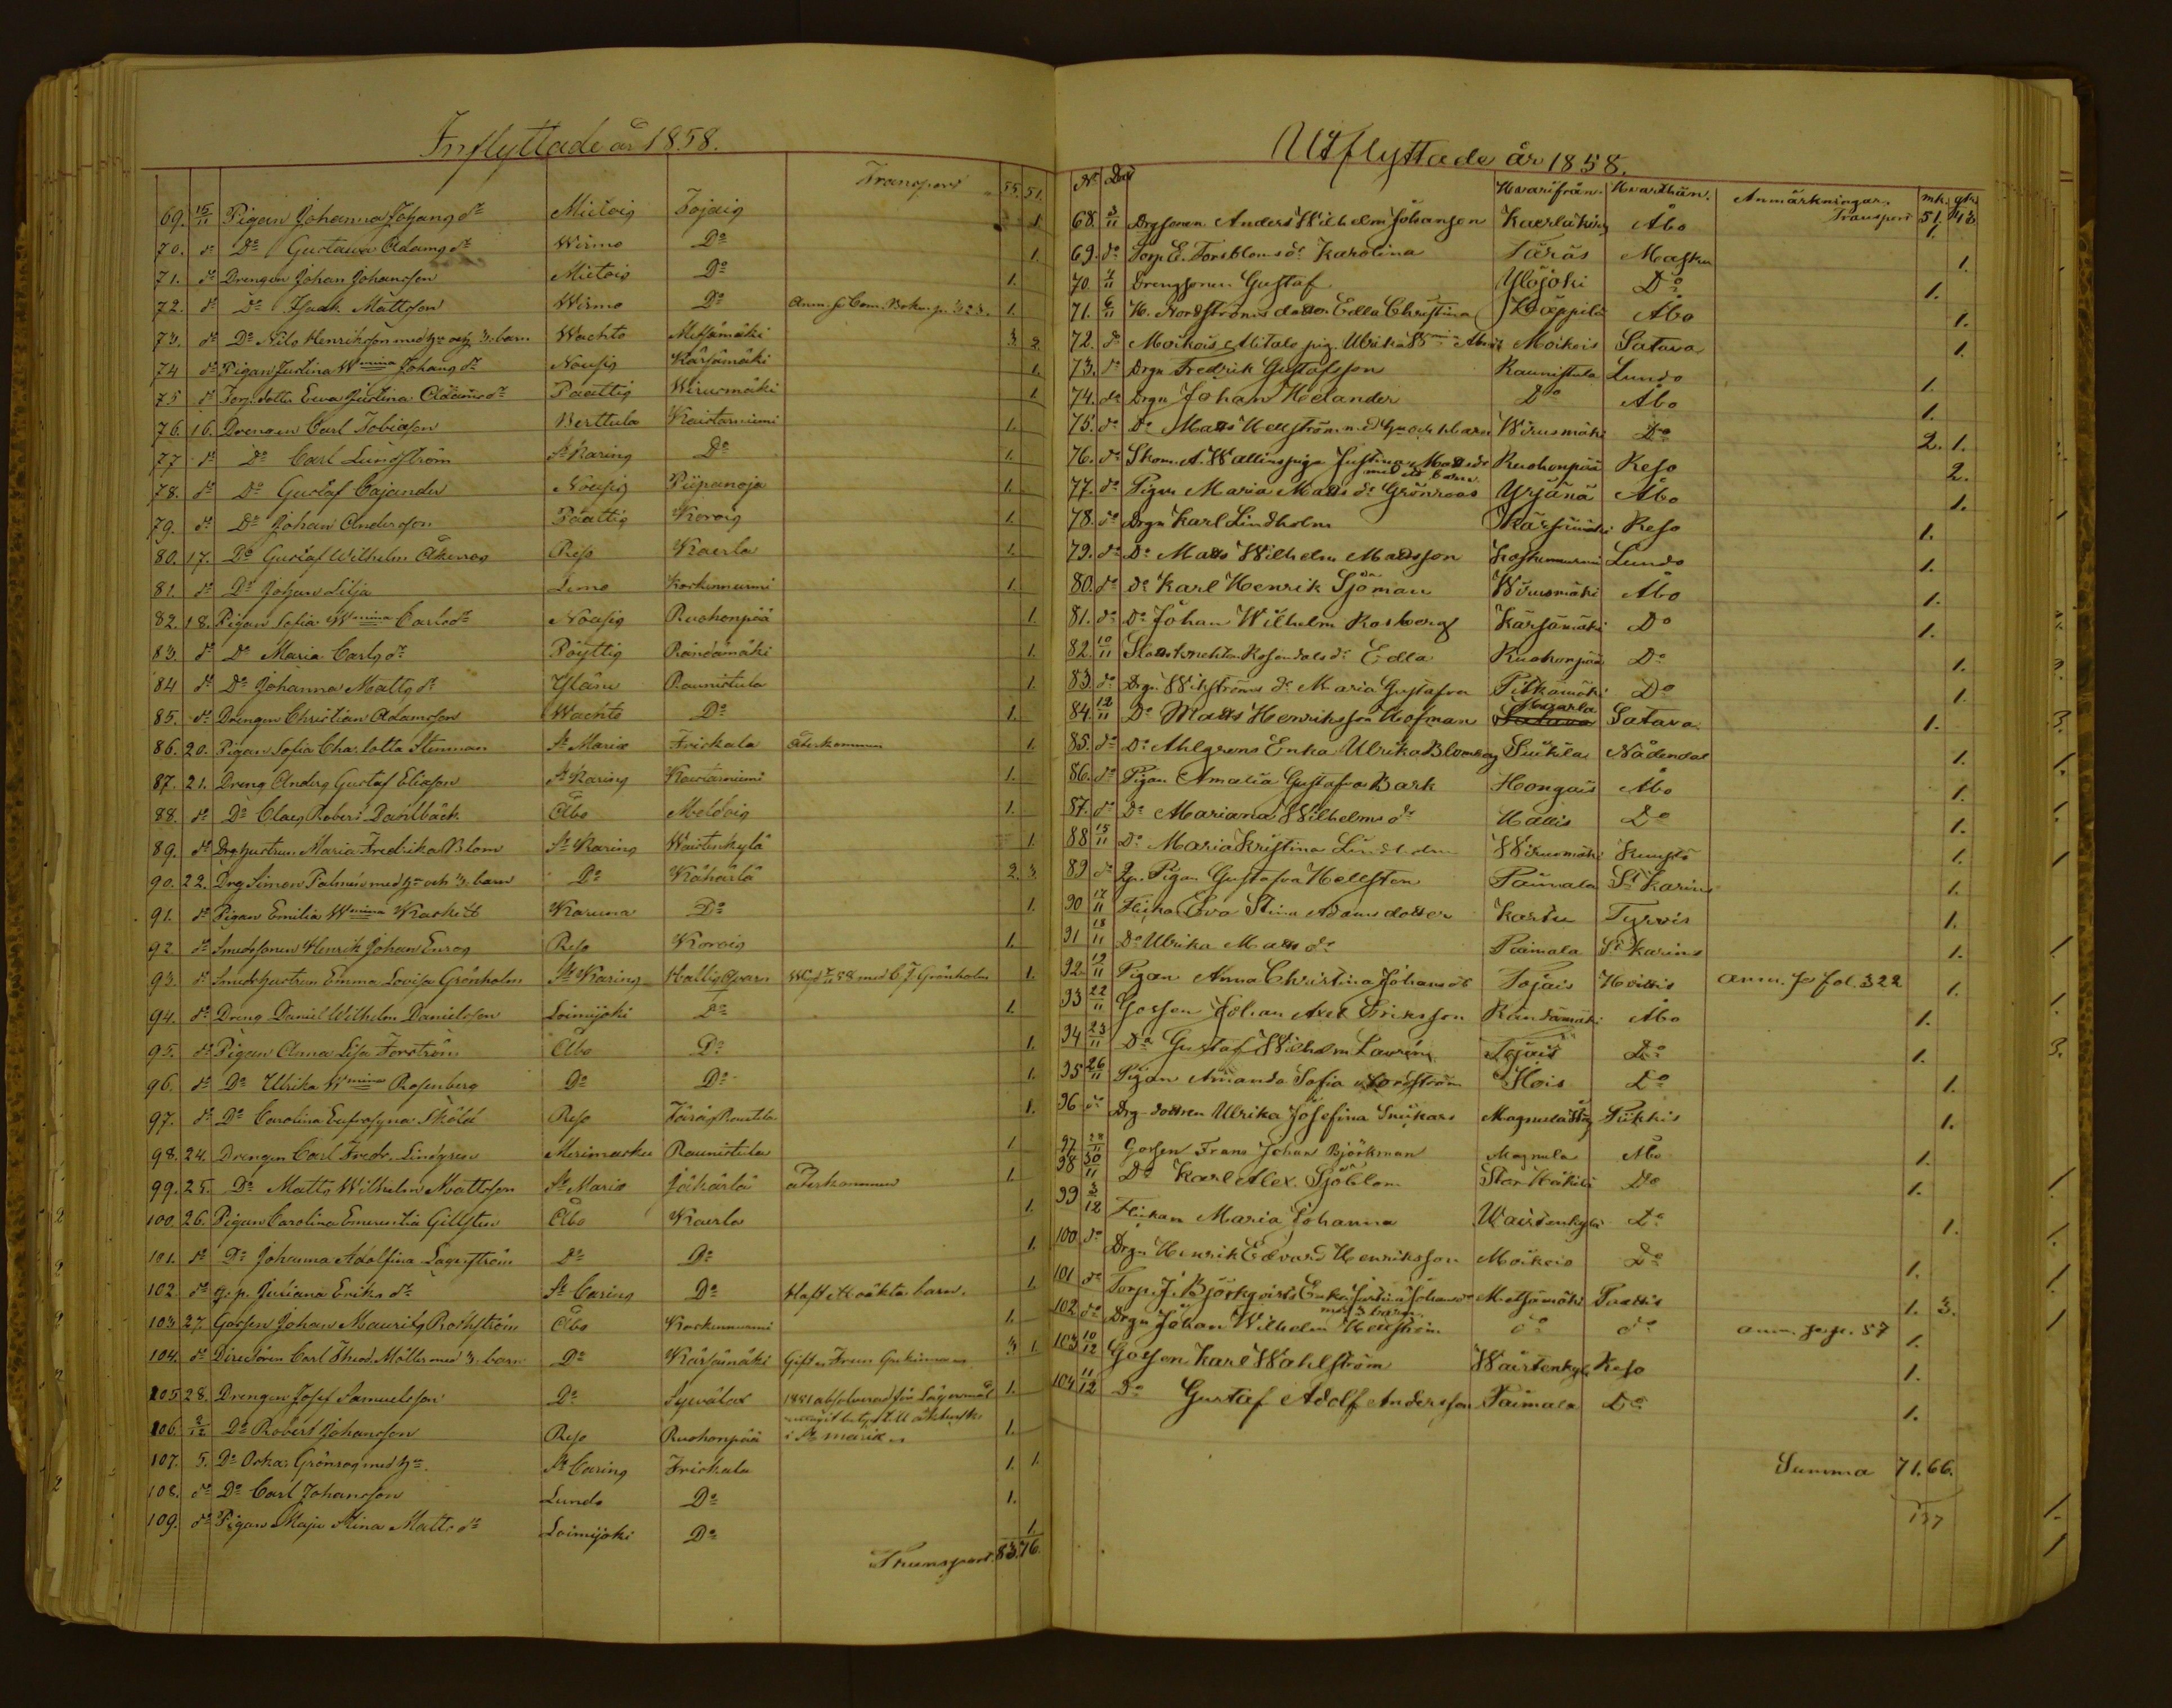 Inflyttade år 1858.
Transport 55. 51.
69. 15/11 Pigan Johanna Johansdr Mietois Tojais 1.
70. do Do Gustava Adamsdr Wirmo Do 1.
71. do Drengen Johan Johansson Mietois Do 1.
72. do Do Isaak Mattsson Wirmo Do Anm. se Com. Boken p. 323. 1.
73. do Do Nils Henriksson med hu och 3. barn Wachto Metsämäki 3 2.
74 do Pigan Justina Wmina Johansdr Nousis Kärsämäki 1.
75 do Torp. dottr Eva Justina Adamsdr Paattis Wirusmäki 1
76. 16. Drengen Carl Tobiasson Berttula Kaistarniemi 1.
77 do Do Carl Lundström St Karins Do 1.
78. do Do Gustaf Cajander Nousis Piipanoja 1.
79. do Do Johan Andersson Paattis Korois 1.
80. 17. Do Gustaf Wilhelm Åkerros Reso Kaerla 1.
81. do Do Johan Lilja Lemo Koskennurmi 1.
82. 18. Pigan Sofia Wmina Carlsdr Nousis Ruohonpää 1.
83. do Do Maria Carlsdr Pöyttis Rändämäki 1.
84 do Do Johanna Mattsdr Yläne Raunistula 1.
85. do Drengen Christian Adamsson Wachto Do 1.
86. 20. Pigan Sofia Charlotta Stenman St Marie Frickala Återkommen 1.
87. 21. Dreng Anders Gustaf Eliasson St Karins Kaistarniemi 1.
88. do Do Claes Robert Dahlbäck Åbo Meldois 1.
89. do Drg hustrun Maria Fredrika Blom St Karins Waistenkylä 1
90. 22. Drg Simon Palmén med hu och 3. barn Do Kähärlä 2. 3
91. do Pigan Emilia Wmina Karuna Do 1.
92 do Smedssonen Henrik Johan Enros Reso Korois 1.
93. do Smedshustrun Emma Lovisa Grönholm St Karins Hallis Qvarn Wigd 58 med C. J. Grönholm 1.
94. do Dreng Daniel Wilhelm Danielsson Loimijoki Do 1.
95. do Pigan Anna Lisa Forström Åbo Do 1.
96. do Do Ulrika Wmina Rosenberg Do Do 1.
97. do Do Carolina Eufrosyna Sköld Reso Taräs 1.
98. 24. Drengen Carl Fredr. Lindgren Merimasku Raunistula 1
99. 25. Do Matts Wilhelm Mattsson St Marie Jäkärlä återkommen 1.
100. 26. Pigan Carolina Emerentia Gillsten Åbo Kaerla 1.
101. do Do Johanna Adolfina Lagerström Do Do 1.
102. do g. p. Juliana Eriksdr St Carins Do Haft oäkta barn. 1.
103 27. Gossen Johan Maurits Rockström Åbo Koskennurmi 1.
104. do Directören Carl Theod. Möller med 3. barn Do Kärsämäki Gift 3 1.
105 28. Drengen Josef Samuelsson Do Syvälax 1851 absolverad för Lägersmål 1.
106. 2/12 Do Robert Johansson Reso Ruohonpää i St Marie 1.
107. 5. Do Oskar Grönros med hu. St Carins Frickala 1. 1.
108. do Do Carl Johansson Lundo Do 1.
109. do Pigan Maja Stina Mattsdr Loimijoki Do 1.
Transport. 83. 76.
Utflyttade år 1858.
No Dat Hvarifrån. Hvarthän. Anmärkningar. mk. qk.
Transport 51. 43
68. 3/11 Drgsonen Anders Wilhelm Johansson Kaerla Åbo 1.
69. do Torp. E. Forsbloms dr Karolina Taräs Masku 1.
70 4/11 Drengsonen Gustaf Ylöjoki Do 1.
71. 6/11 H. Nordströms dotter Edla Christina Kräppilä Åbo 1.
72. do Moikois Alitalo pig. Ulrika Wmina Moikois Satava 1.
73. do Drgn Fredrik Gustafsson Raunistula Lundo 1.
74. do Drgn Johan Helander Do Åbo 1.
75. do Do Matts Hellström med hu och 1 barn Wirusmäki Do 2. 1.
76. do Skom. A. Wallins piga Justina Mattsdr Ruohonpää Reso 2.
med ett barn.
77. do Pigan Maria Mattsdr Grönroos Yrjänä Åbo 1.
78. do Drgn Karl Lindholm Kärsämäki Reso 1.
79. do Do Matts Wilhelm Mattsson Koskennurmi Lundo 1.
80. do Do Karl Henrik Sjöman Wirusmäki Åbo 1.
81. do Do Johan Wilhelm Rosberg Kärsämäki Do 1.
82. 10/11 Rosendals dr Edla Ruohonpää Do 1.
83. do Drgn Wikströms dr Maria Gustafva Pitkämäki Do 1.
84. 12/11 Do Matts Henriksson Hofman Kaerla Satava 1.
85. do Do Ahlgrens Enka Ulrika Blomberg Suikila Nådendal 1.
86. do Pigan Amalia Gustafva Bark Hongais Åbo 1.
87. do Do Mariana Wilhelmsdr Hallis Do 1.
88 15/11 Do Maria Kristina Lindholm Wirusmäki Kuustö 1.
89 do Qp. Pigan Gustafva Hellsten Paimala St Karins 1.
90 17/11 Flickan Eva Stina Adamsdotter Kastu Tyrvis 1.
91 18/11 Do Ulrika Mattsdr Paimala St Karins 1.
92. 19/11 Pigan Anna Christina Johansdr Tojais Hvittis anm. se fol. 322 1.
93 22/11 Gossen Johan Axel Eriksson Rändämäki Åbo 1.
94 23/11 Do Gustaf Wilhelm Laurén Tojais Do 1.
95 26/11 Pigan Amanda Sofia Nordström Hois Do 1.
96 do Drg. dottren Ulrika Josefina Snickars Magnula Piikkis 1.
97. 28/11 Gossen Frans Johan Björkman Magnula Åbo 1.
98 30/11 Do Karl Alex. Sjöblom Stor Heikkilä Do 1.
99 3/12 Flickan Maria Johanna Waistenkylä Do 1.
100. do Drgn Henrik Edvard Henriksson Moikois Do 1.
101 do Torp. J. Björkqvists Enka Justina Johansdr Metsämäki Paattis 1. 3.
med 3 barn.
102 do Drgn Johan Wilhelm Hellström do do anm. se p. 57 1.
103 10/12 Gossen Karl Wahlström Waistenkylä Reso 1.
104 11/12 Do Gustaf Adolf Andersson Paimala Do 1.
Summa 71. 66.
137